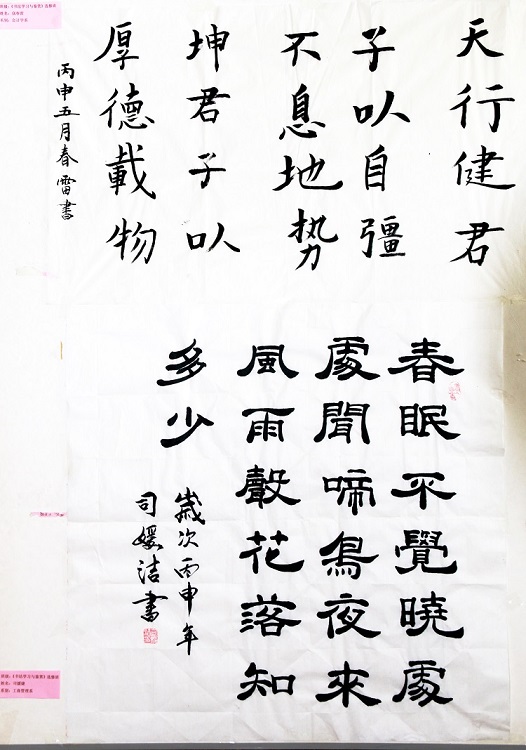 天行健君
子以自彊
不息地势
坤君子以
厚德載物
丙申五月春雷書
春眠不覺曉處
處聞啼鳥夜來
風雨聲花落知
多少
歲次丙申年
司媛洁書